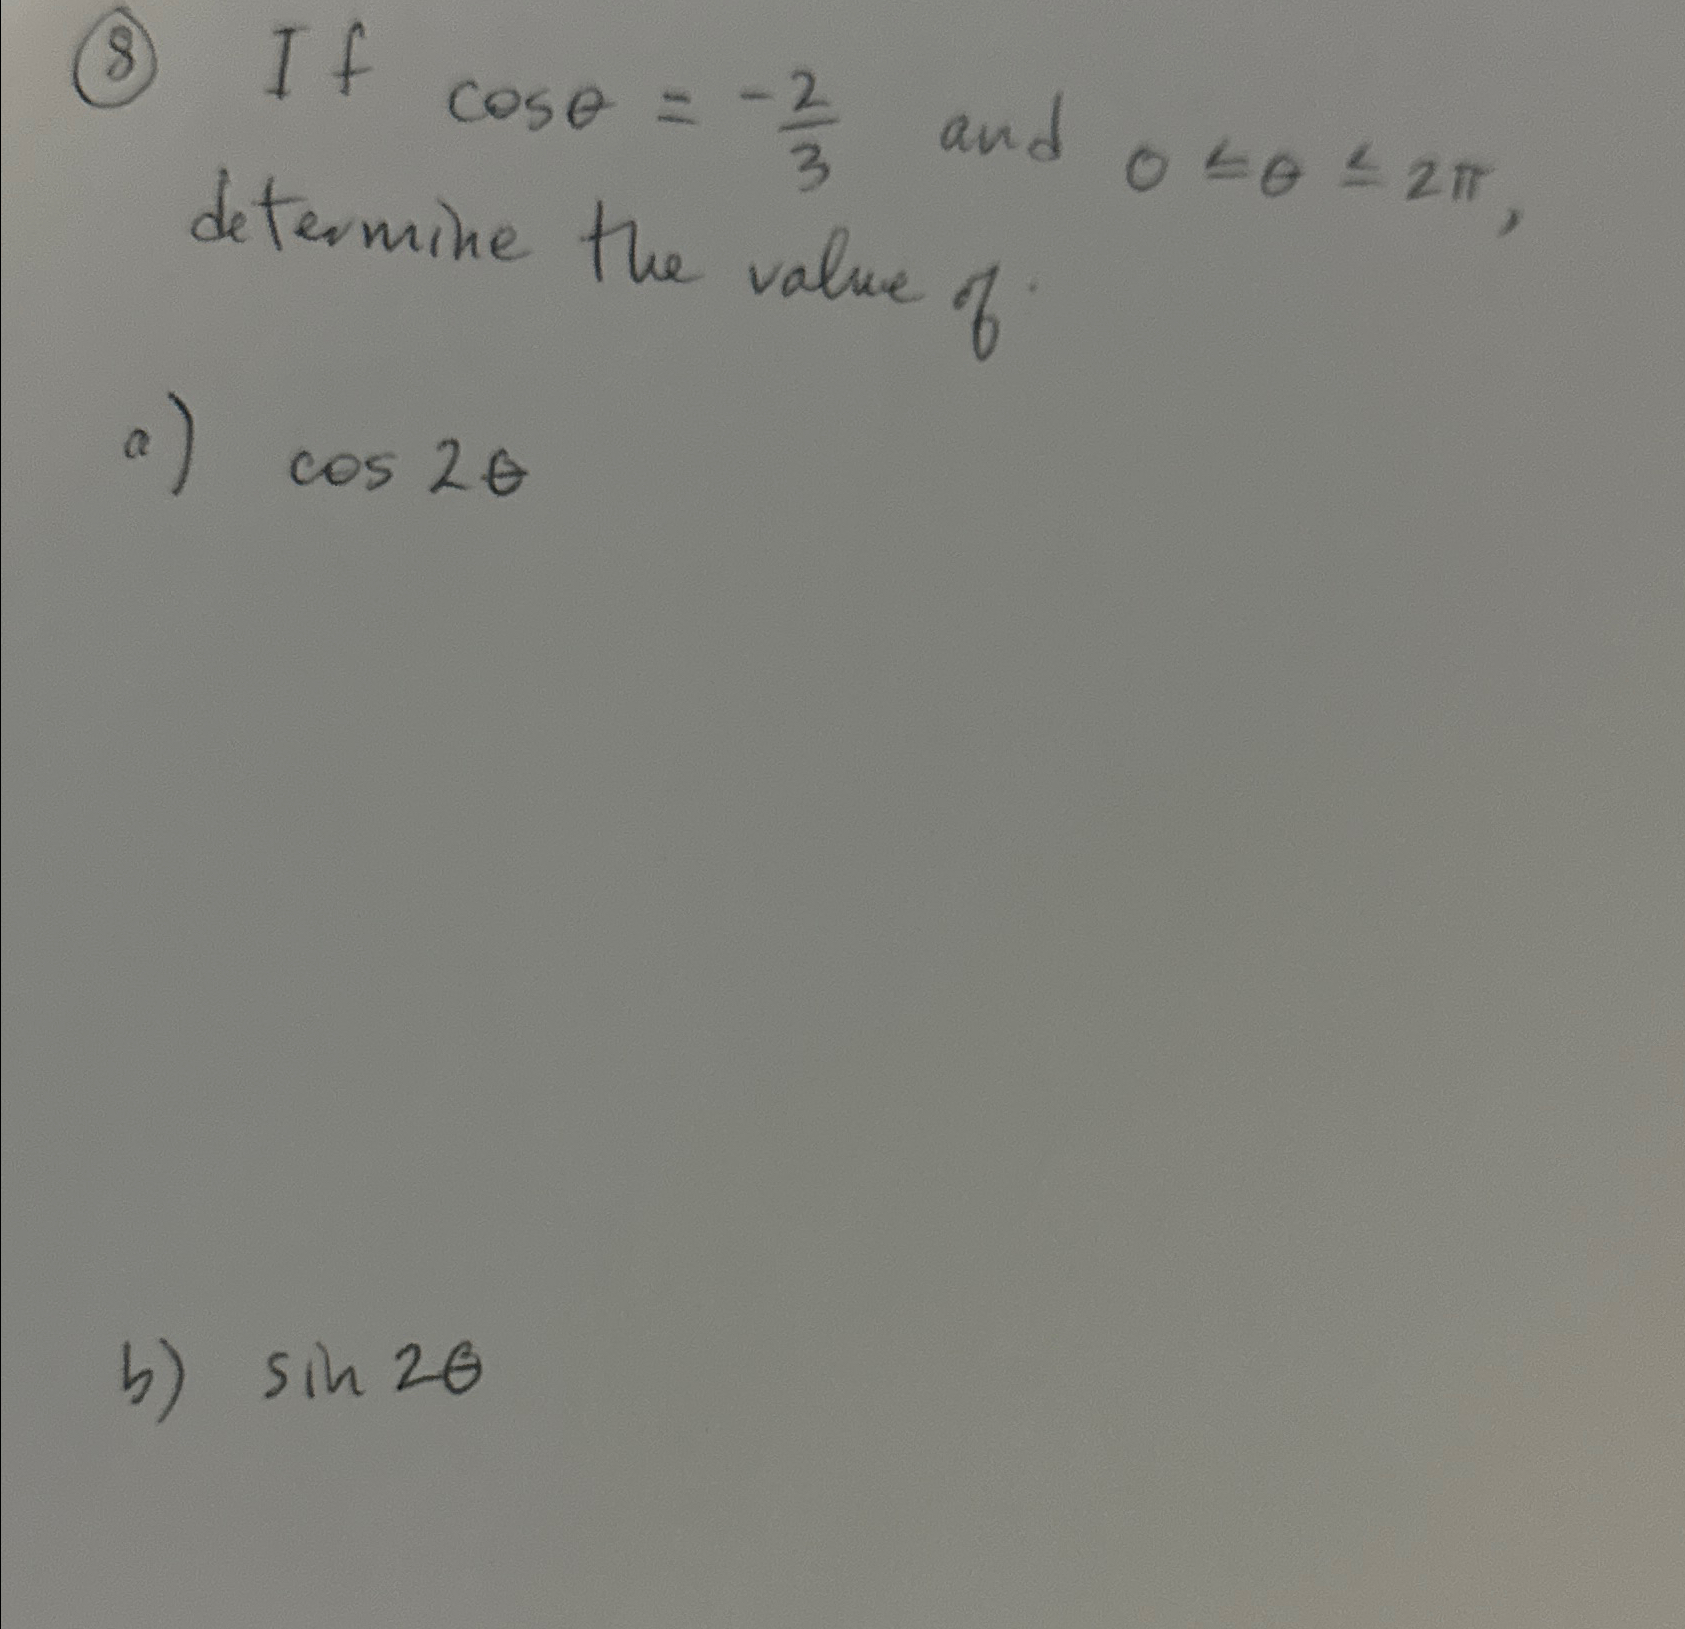 ⑧ If cosθ = -2/3 and 0 ≤ θ ≤ 2π,
determine the value of:
a) cos 2θ
b) sin 2θ